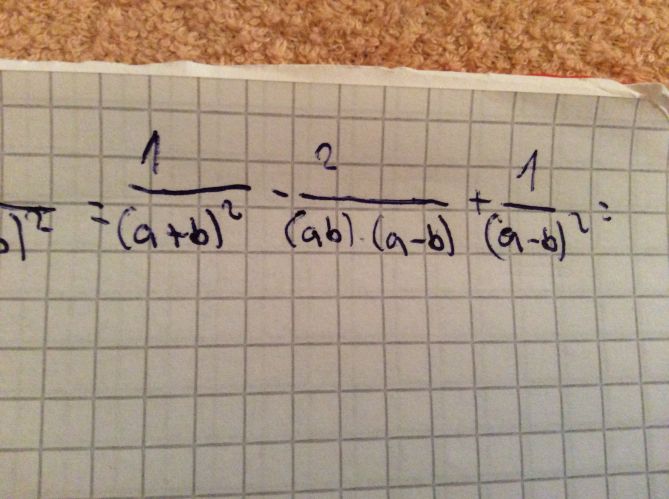 b)² = 1/(a+b)² - 2/(ab)·(a-b) + 1/(a-b)² =